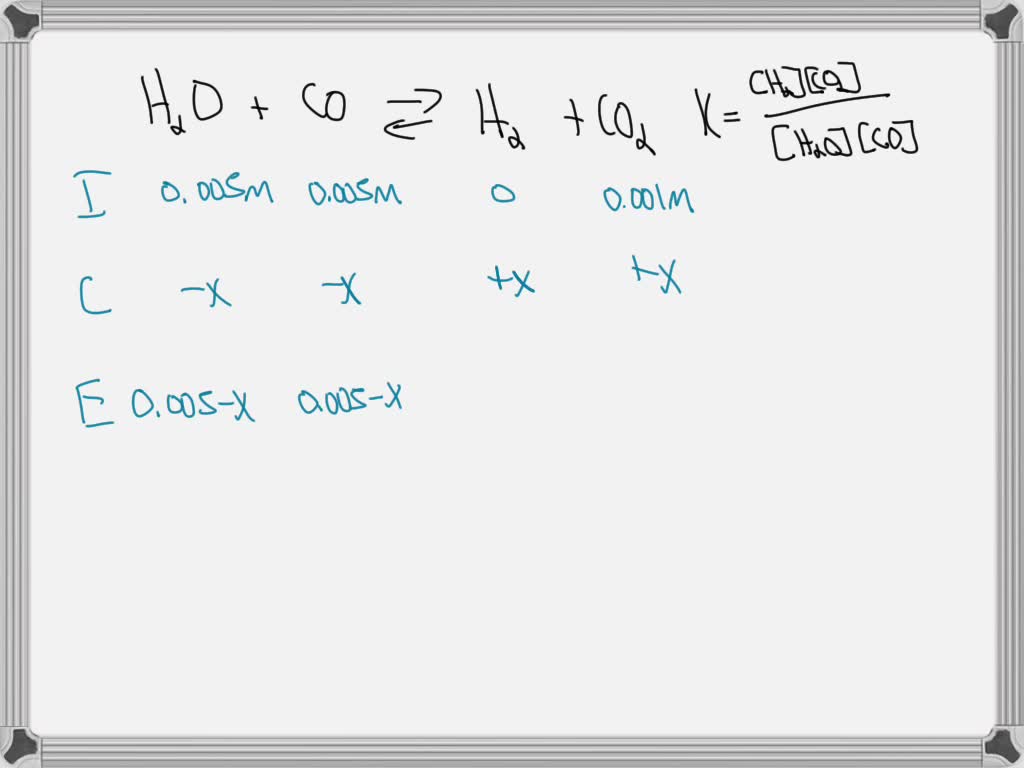 H₂O + CO ⇌ H₂ + CO₂ K = [H₂][CO₂] / [H₂O][CO]
I 0.005M 0.005M 0 0.001M
C -x -x +x +x
E 0.005-x 0.005-x